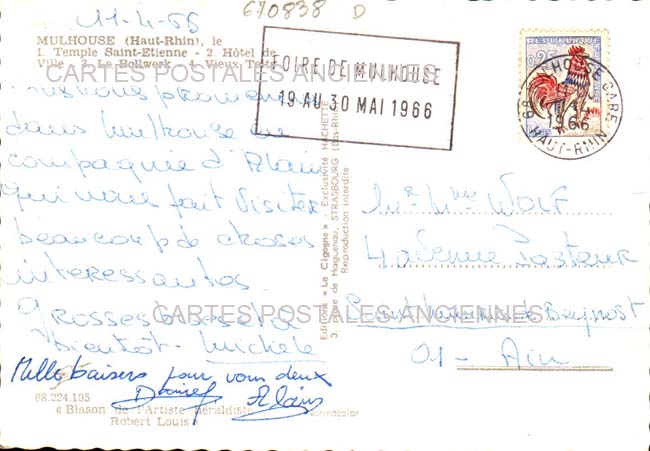 11-4-66
670838 D
MULHOUSE (Haut-Rhin), le
1. Temple Saint-Etienne - 2. Hôtel de
Ville - 3. Le Bollwerk - 4. Vieux Toits
CARTES POSTALES ANCIENNES
nous promenons
dans Mulhouse en
compagnie d'Alain
qui nous fait visiter
beaucoup de choses
interessantes.
Grosses bises et à
bientôt - Michèle
Mille baisers pour vous deux
Daniel Alain
68.224.105
« Blason de l'Artiste héraldiste
Robert Louis »
FOIRE DE MULHOUSE
19 AU 30 MAI 1966
Editions « La Cigogne » - Exclusivité HACHETTE
3, Place de Haguenau, STRASBOURG (Bas-Rhin)
Reproduction interdite
0,25
68 MULHOUSE GARE
1966
HAUT-RHIN
Mr Mme WOLF
4 avenue Pasteur
Saint Maurice de Beynost
01 - Ain
CARTES POSTALES ANCIENNES